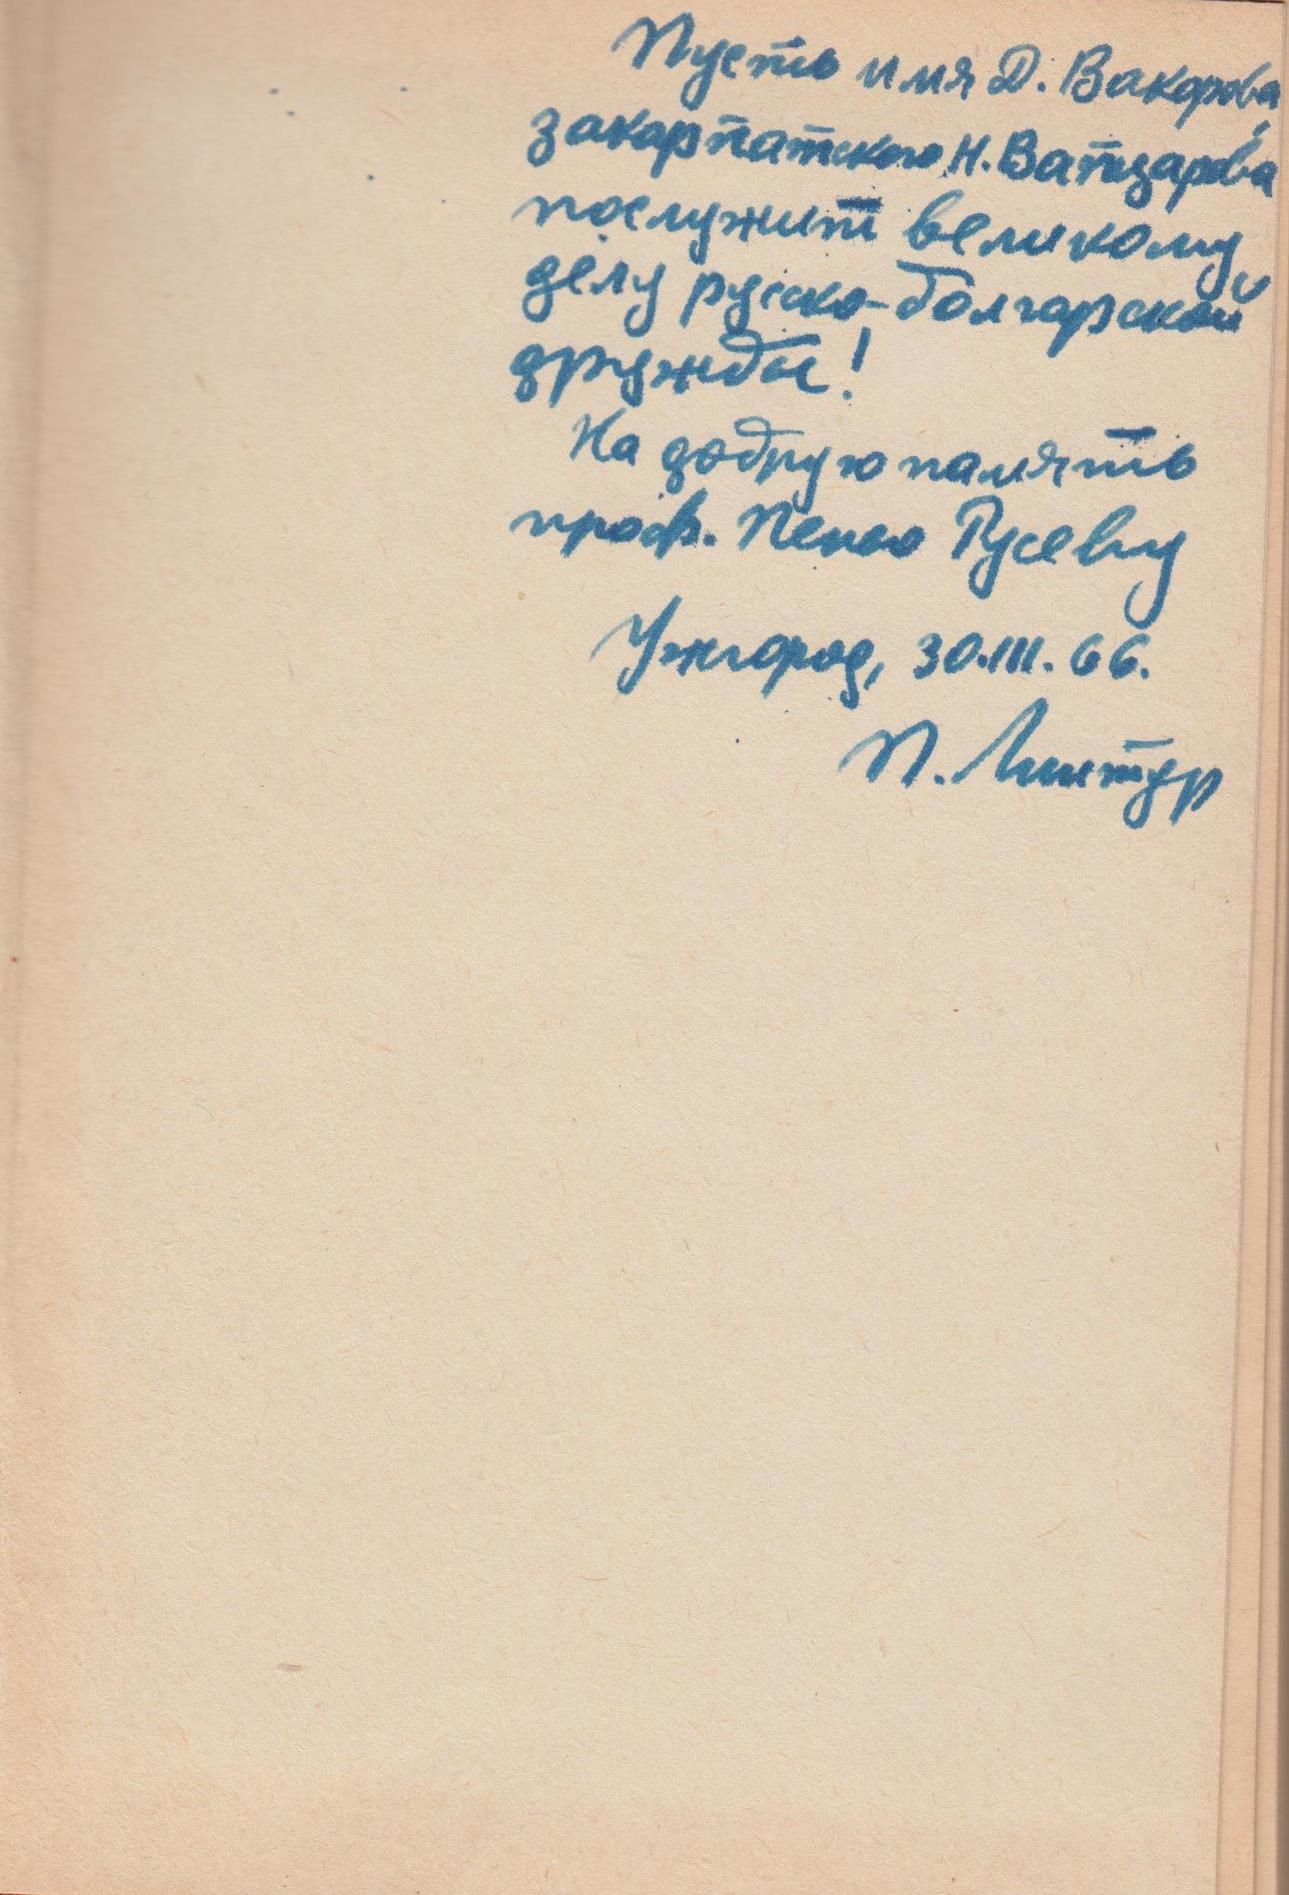 Пусть имя Д. Вакарова,
закарпатского Н. Вапцарова
послужит великому
делу русско-болгарской
дружбы!
На добрую память
проф. Пеньо Русеву
Ужгород, 30.III.66.
П. Линтур